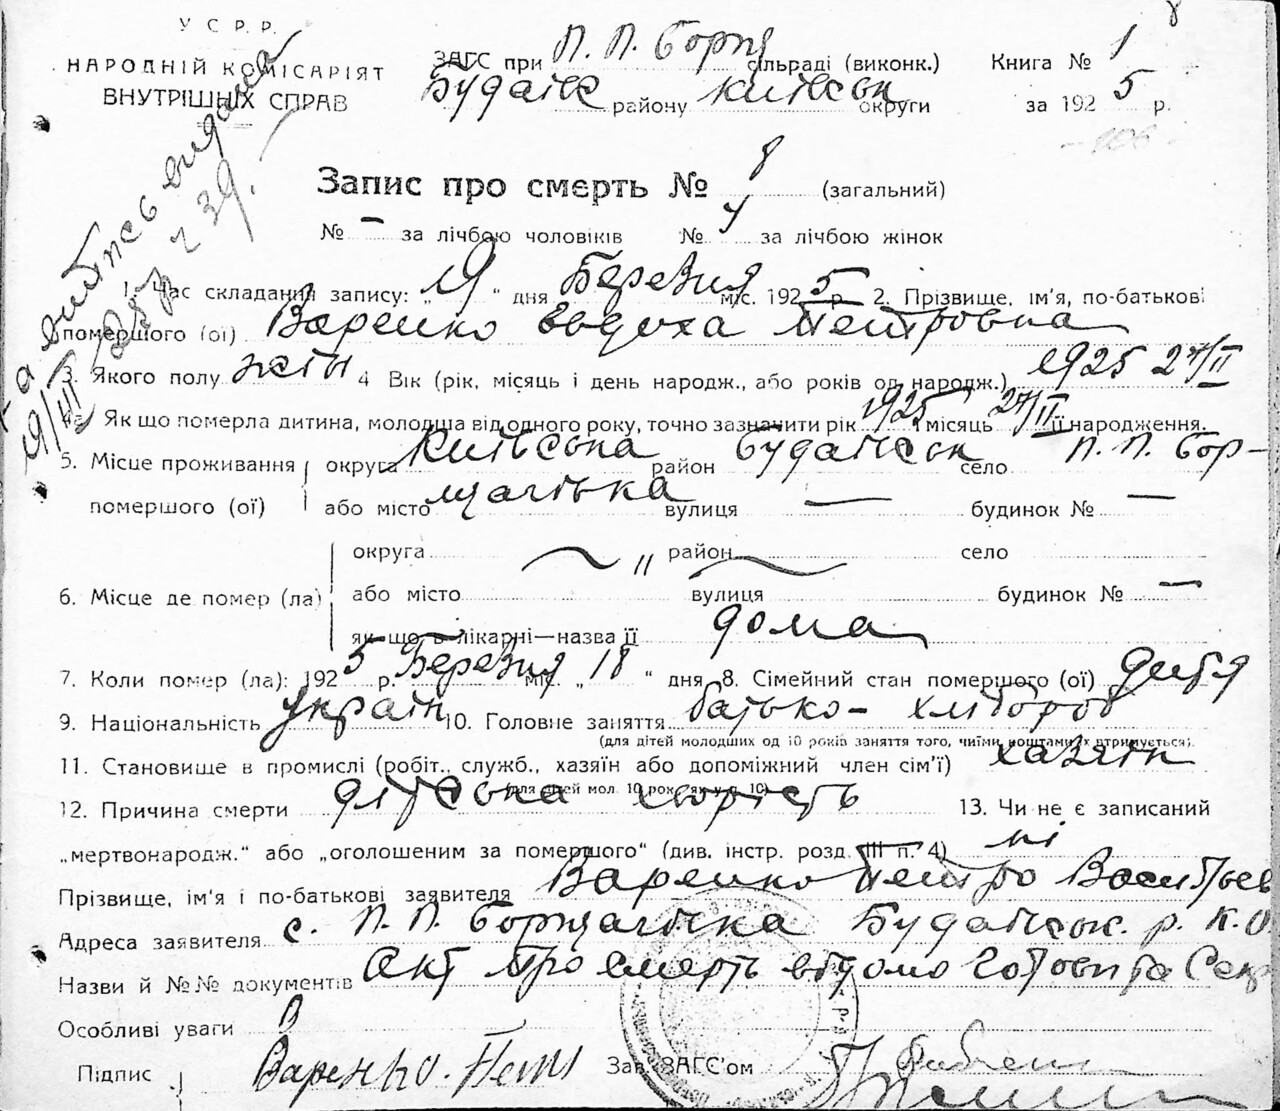 У С Р. Р.
НАРОДНІЙ КОМІСАРІЯТ
ВНУТРІШНІХ СПРАВ
ЗАГС при П. П. Борщ сільраді (виконк.) Книга № 1
Будаївс району Київськ округи за 1925 р.
Запис про смерть № 8 (загальний)
№ – за лічбою чоловіків № 4 за лічбою жінок
1. Час складання запису: „19“ дня Березня міс. 1925 р. 2. Прізвище, ім'я, по-батькові
помершого (ої) Варенко Петровна
3. Якого полу жін 4 Вік (рік, місяць і день народж., або років од народж.) 1925 27/II
4а. Як що померла дитина, молодша від одного року, точно зазначити рік 1925 місяць 27/II її народження.
5. Місце проживання округа Київська район Будаївськ село П. П. Бор-
помершого (ої) або місто щагівка вулиця — будинок № —
округа ~ „ район ~ село
6. Місце де помер (ла) або місто вулиця будинок № —
як що в лікарні—назва її дома
7. Коли помер (ла): 1925 р. Березня міс. „18“ дня 8. Сімейний стан помершого (ої) дитя
9. Національність україн 10. Головне заняття батько – хлібороб
(для дітей молодших од 10 років заняття того, чиїми коштами їх втримується).
11. Становище в промислі (робіт., служб., хазяїн або допоміжний член сім'ї) хазяїн
(для дітей мол. 10 рок. як у п. 10)
12. Причина смерти дітська хворість 13. Чи не є записаний
„мертвонародж.“ або „оголошеним за помершого“ (див. інстр. розд. III п. 4) ні
Прізвище, ім'я і по-батькові заявителя Варенко Петро Васильев
Адреса заявителя с. П. П. Борщагівка Будаївськ. р. К. О.
Назви й №№ документів Акт про смерть
Особліві уваги
Підпис Варенко. Зав. ЗАГС'ом